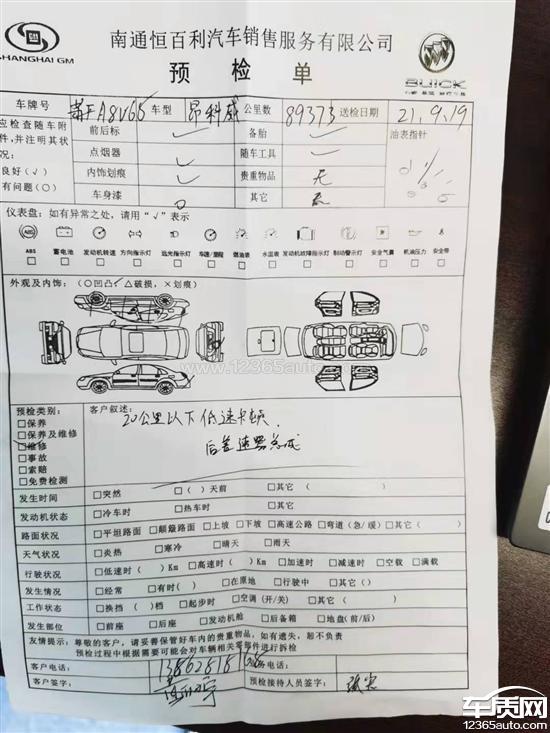 SHANGHAI GM
南通恒百利汽车销售服务有限公司
预检单
BUICK
车牌号 车型 昂科威 公里数 89373 送检日期 21.9.19
应检查随车附件,并注明其状况:
良好(√)
有问题(○)
前后标 √ 备胎 √ 油表指针
点烟器 √ 随车工具 √
内饰划痕 √ 贵重物品 无
车身漆 其它
仪表盘:如有异常之处,请用“√”表示
ABS 蓄电池 发动机转速 方向指示灯 远光指示灯 车速/里程 燃油表 水温表 发动机故障指示灯 制动警示灯 安全气囊 机油压力 安全带
外观及内饰:(○凹凸 △破损,×划痕)
www.12365auto.com
预检类别:
□保养
□保养及维修
□维修
□事故
□索赔
□免费检测
客户叙述:
20公里以下低速卡顿.
后差速器总成
发生时间 □突然 □( )天前 □其它( )
发动机状态 □冷车时 □热车时 □其它( )
路面状况 □平坦路面 □颠簸路面 □上坡 □下坡 □高速公路 □弯道(急/缓) □其它( )
天气状况 □炎热 □寒冷 □晴天 □雨天
行驶状况 □低速时( )Km □高速时( )Km □加速时 □减速时 □空载 □满载
发生情况 □经常 □有时( ) □在原地 □行驶中 □其它()
工作状态 □换挡( )档 □起步时 □空调(开/关) □其它( )
发生部位 □前座 □后座 □发动机舱 □后备箱 □地盘(前/后)
友情提示:尊敬的客户,请妥善保管好车内的贵重物品,如有遗失,恕不负责
预检过程中根据需要可能会对车辆相关零部件进行拆检
客户电话: 服务电话:
客户签字: 预检接待人员签字:
车质网
12365auto.com